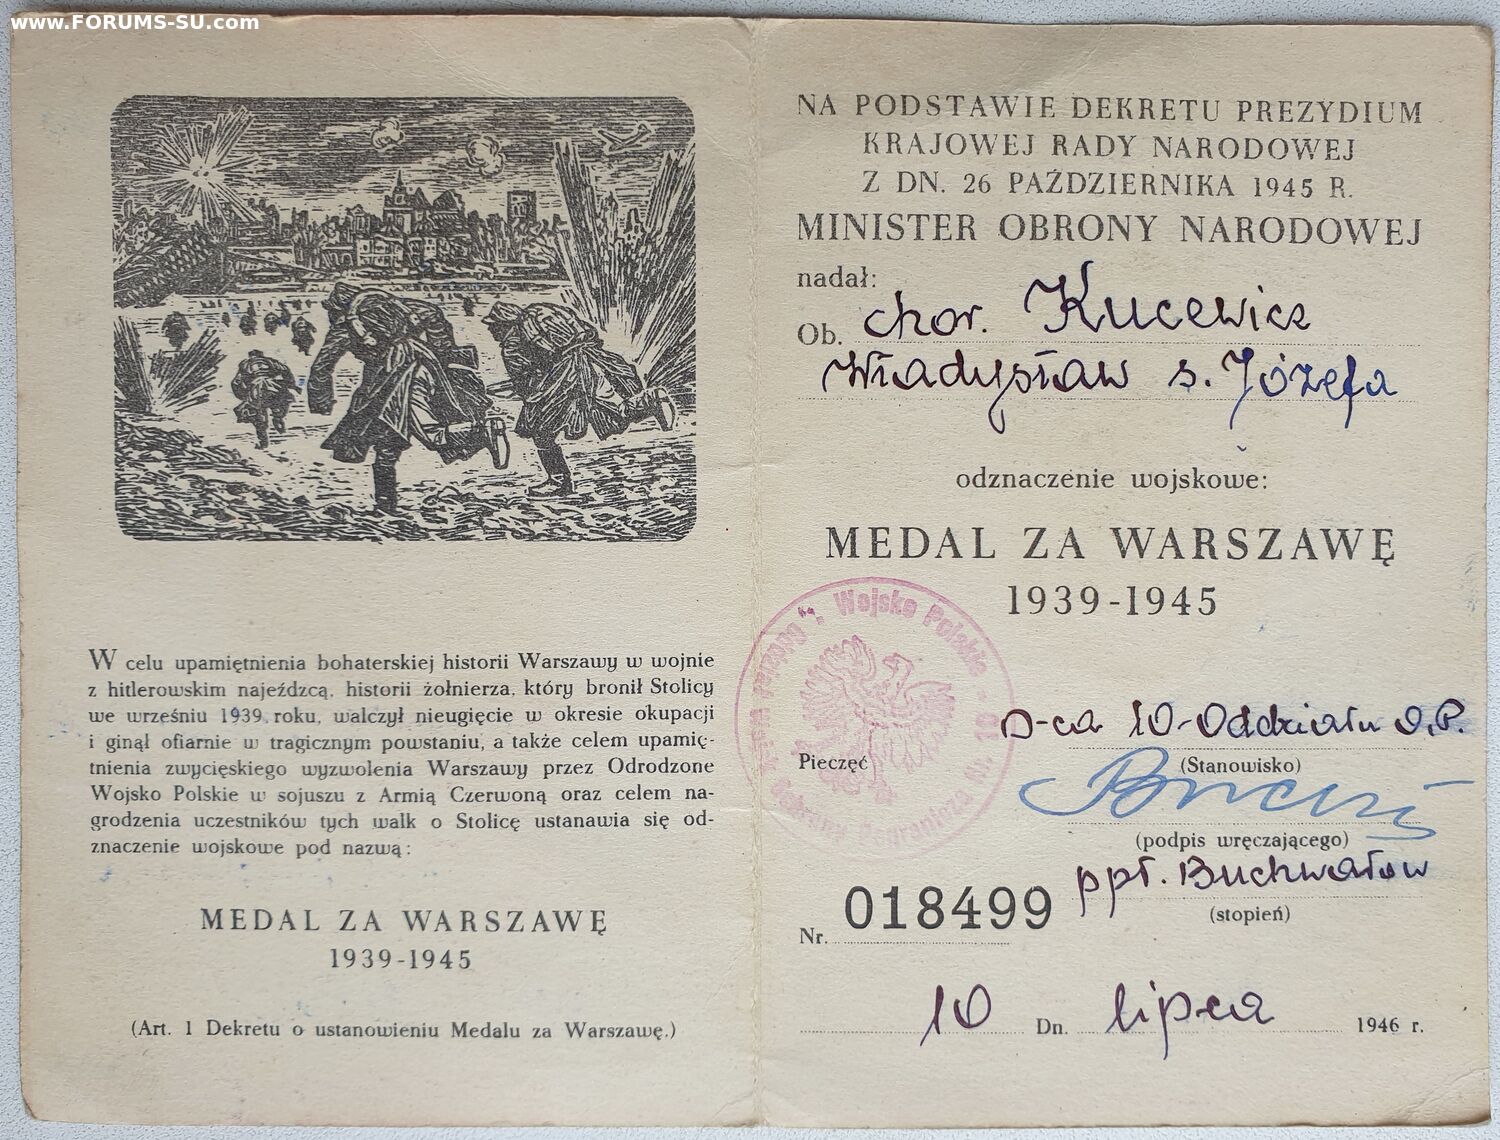 www.FORUMS-SU.com
W celu upamiętnienia bohaterskiej historii Warszawy w wojnie
z hitlerowskim najeźdzcą, historii żołnierza, który bronił Stolicy
we wrześniu 1939 roku, walczył nieugięcie w okresie okupacji
i ginął ofiarnie w tragicznym powstaniu, a także celem upamię-
tnienia zwycięskiego wyzwolenia Warszawy przez Odrodzone
Wojsko Polskie w sojuszu z Armią Czerwoną oraz celem na-
grodzenia uczestników tych walk o Stolicę ustanawia się od-
znaczenie wojskowe pod nazwą:
MEDAL ZA WARSZAWĘ
1939-1945
(Art. 1 Dekretu o ustanowieniu Medalu za Warszawę.)
NA PODSTAWIE DEKRETU PREZYDIUM
KRAJOWEJ RADY NARODOWEJ
Z DN. 26 PAŹDZIERNIKA 1945 R.
MINISTER OBRONY NARODOWEJ
nadał:
Ob. chor. Kucewicz
Władysław s. Józefa
odznaczenie wojskowe:
MEDAL ZA WARSZAWĘ
1939-1945
Wojsko Polskie
Ochrony Pogranicza Nr. 10
D-ca 10-Oddziału O.P.
Pieczęć
(Stanowisko)
(podpis wręczającego)
ppł. Buchwałow
(stopień)
Nr. 018499
10 Dn. lipca 1946 r.